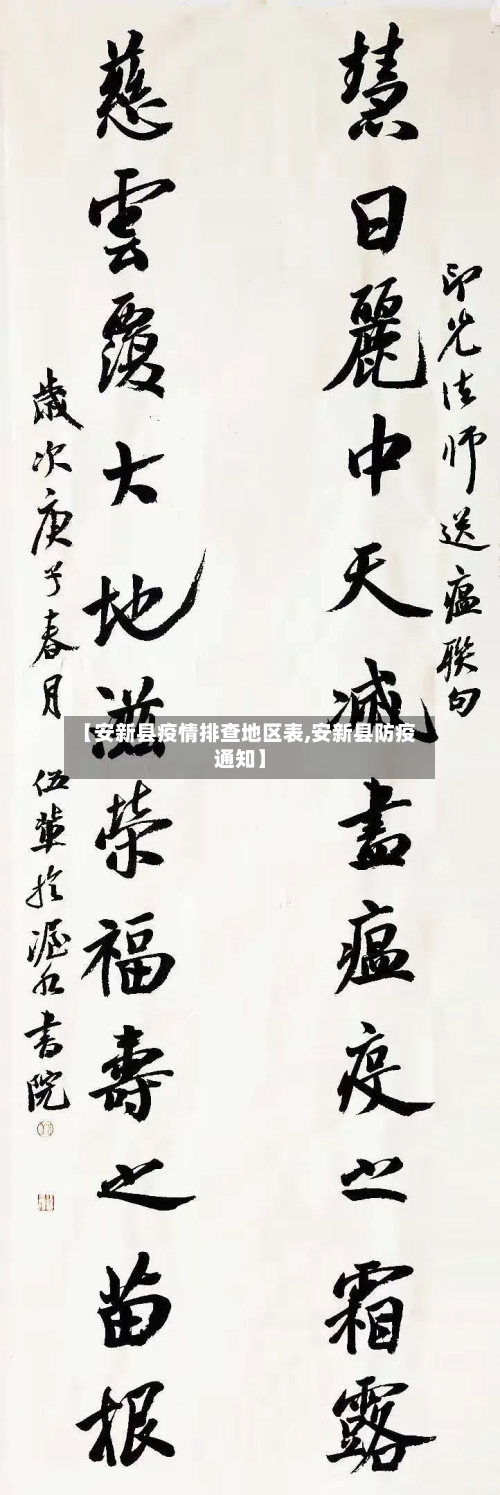 印光法师送瘟联句
慧日麗中天滅盡瘟疫之霜露
慈雲覆大地滋荣福壽之苗根
歲次庚子春月 伍華於漫水書院
【安新县疫情排查地区表,安新县防疫
通知】